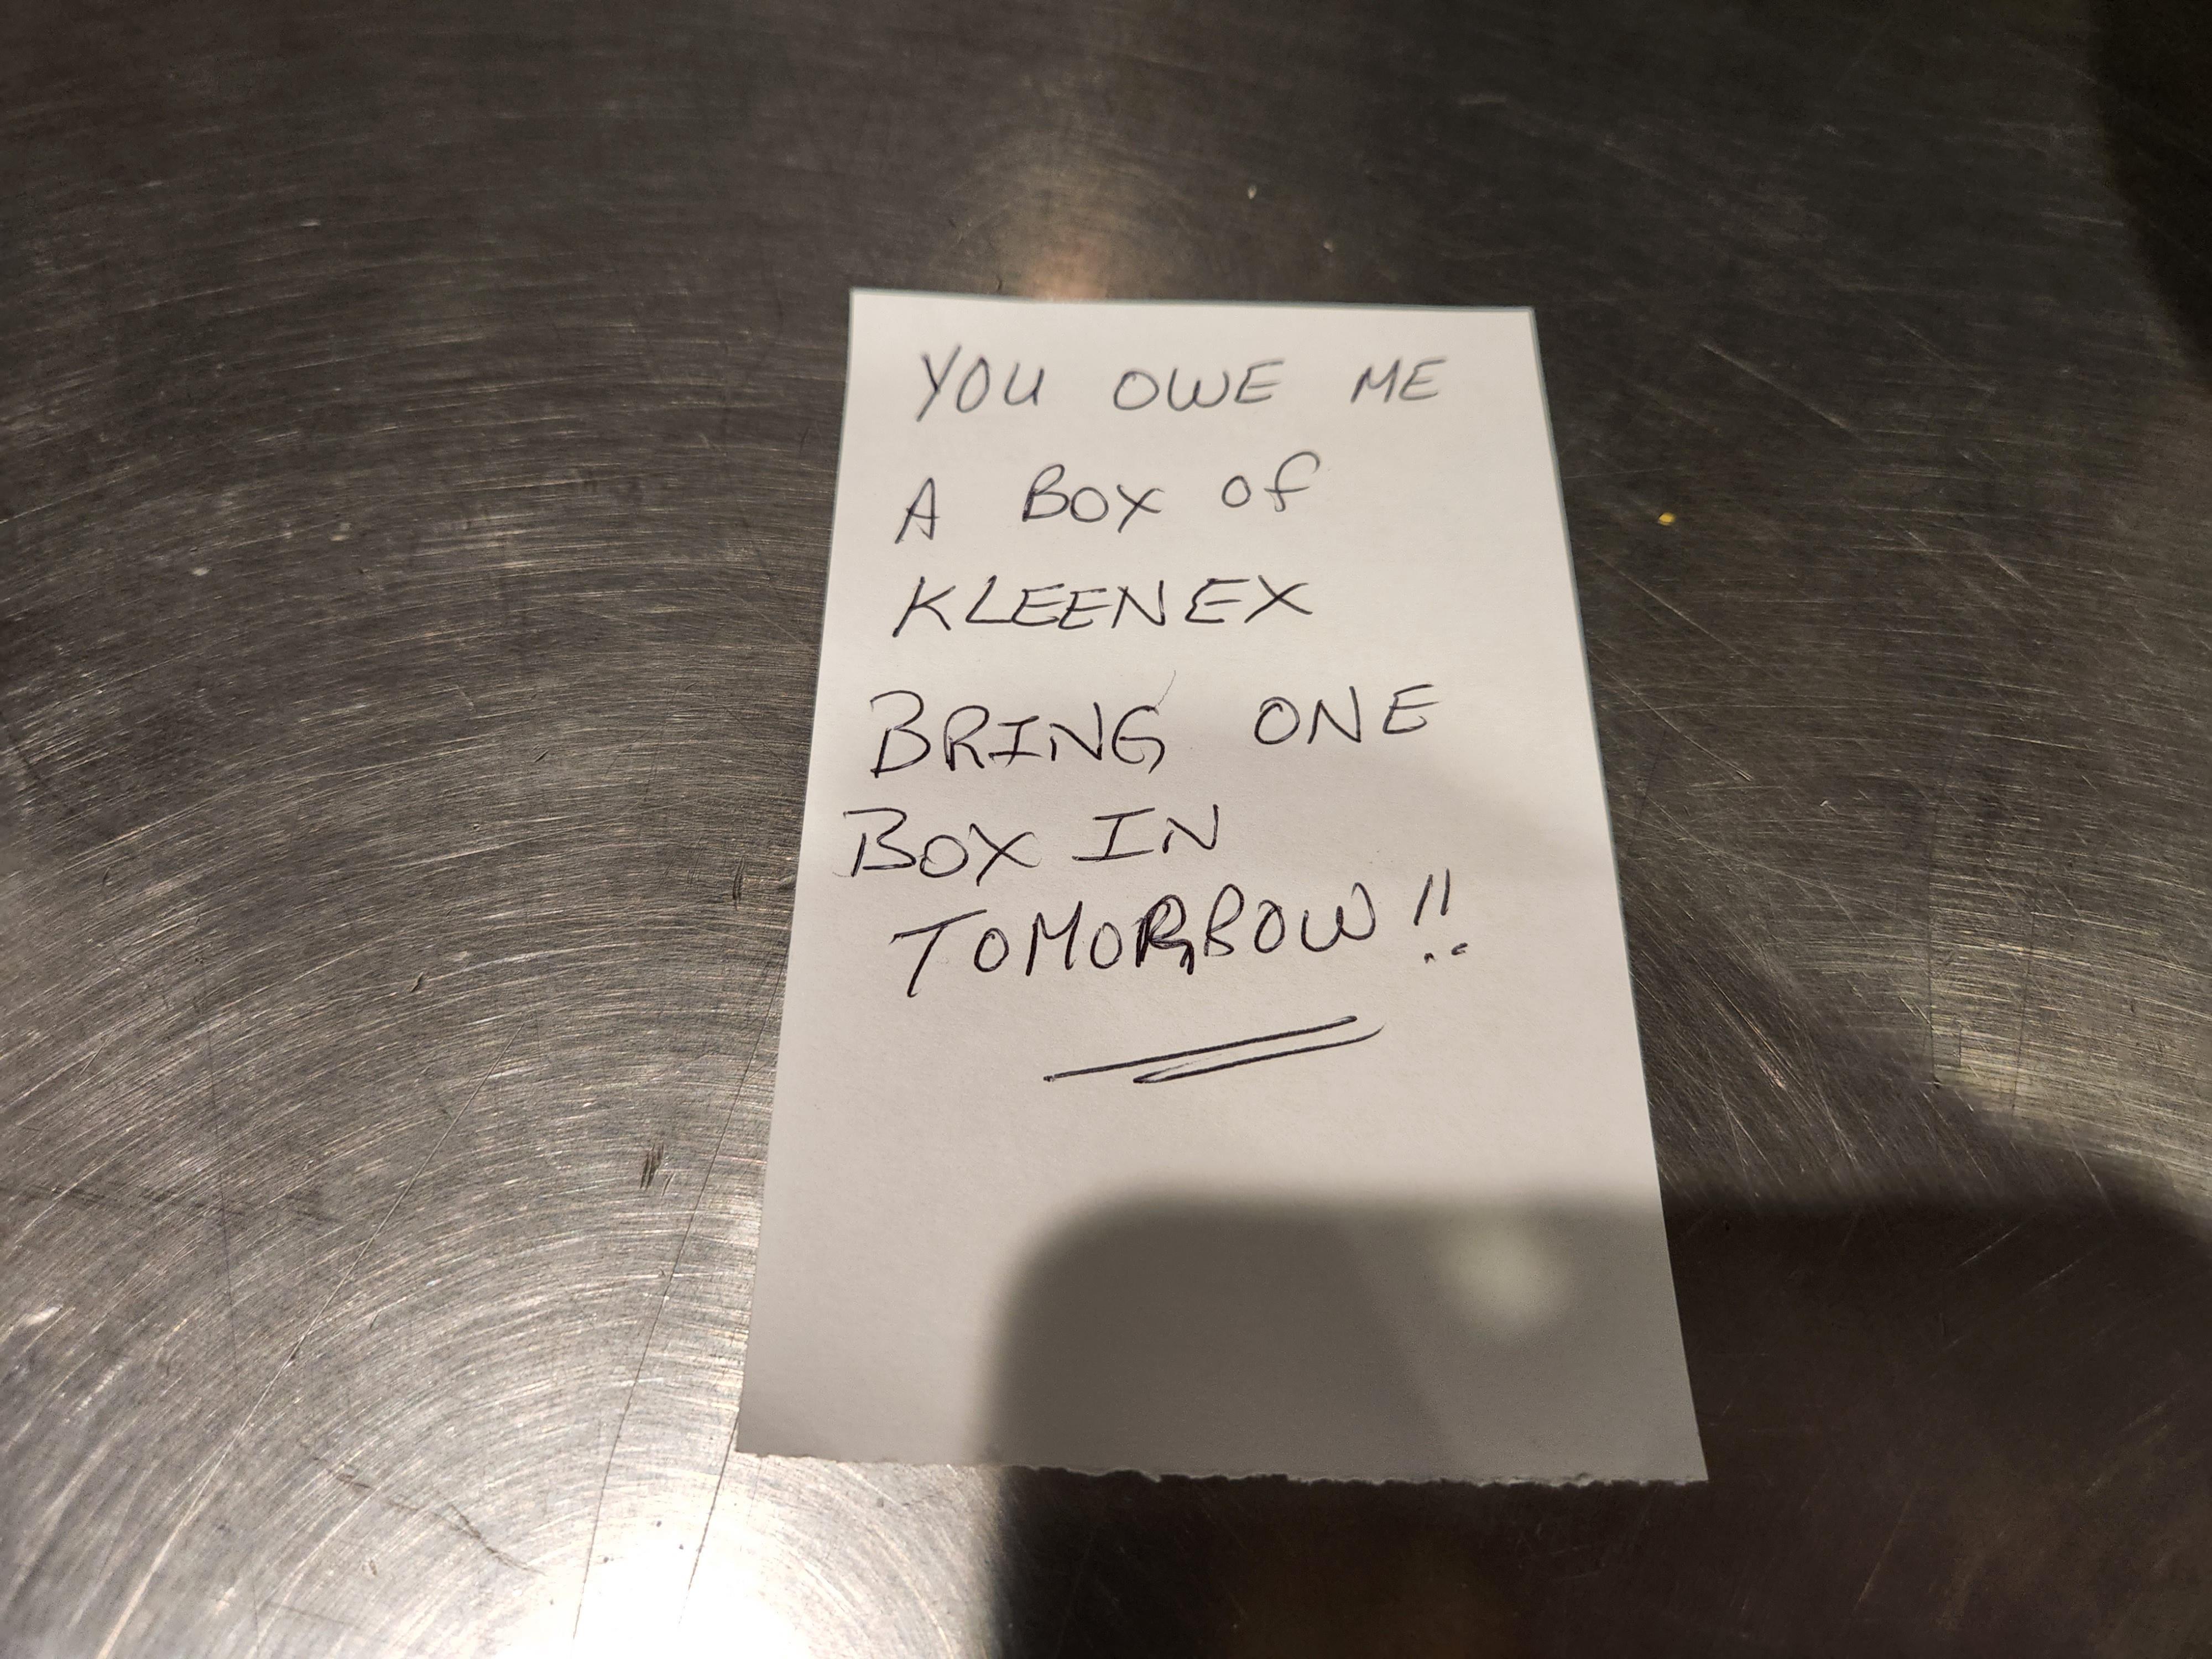 YOU OWE ME
A BOX of
KLEENEX
BRING ONE
BOX IN
TOMORROW!!